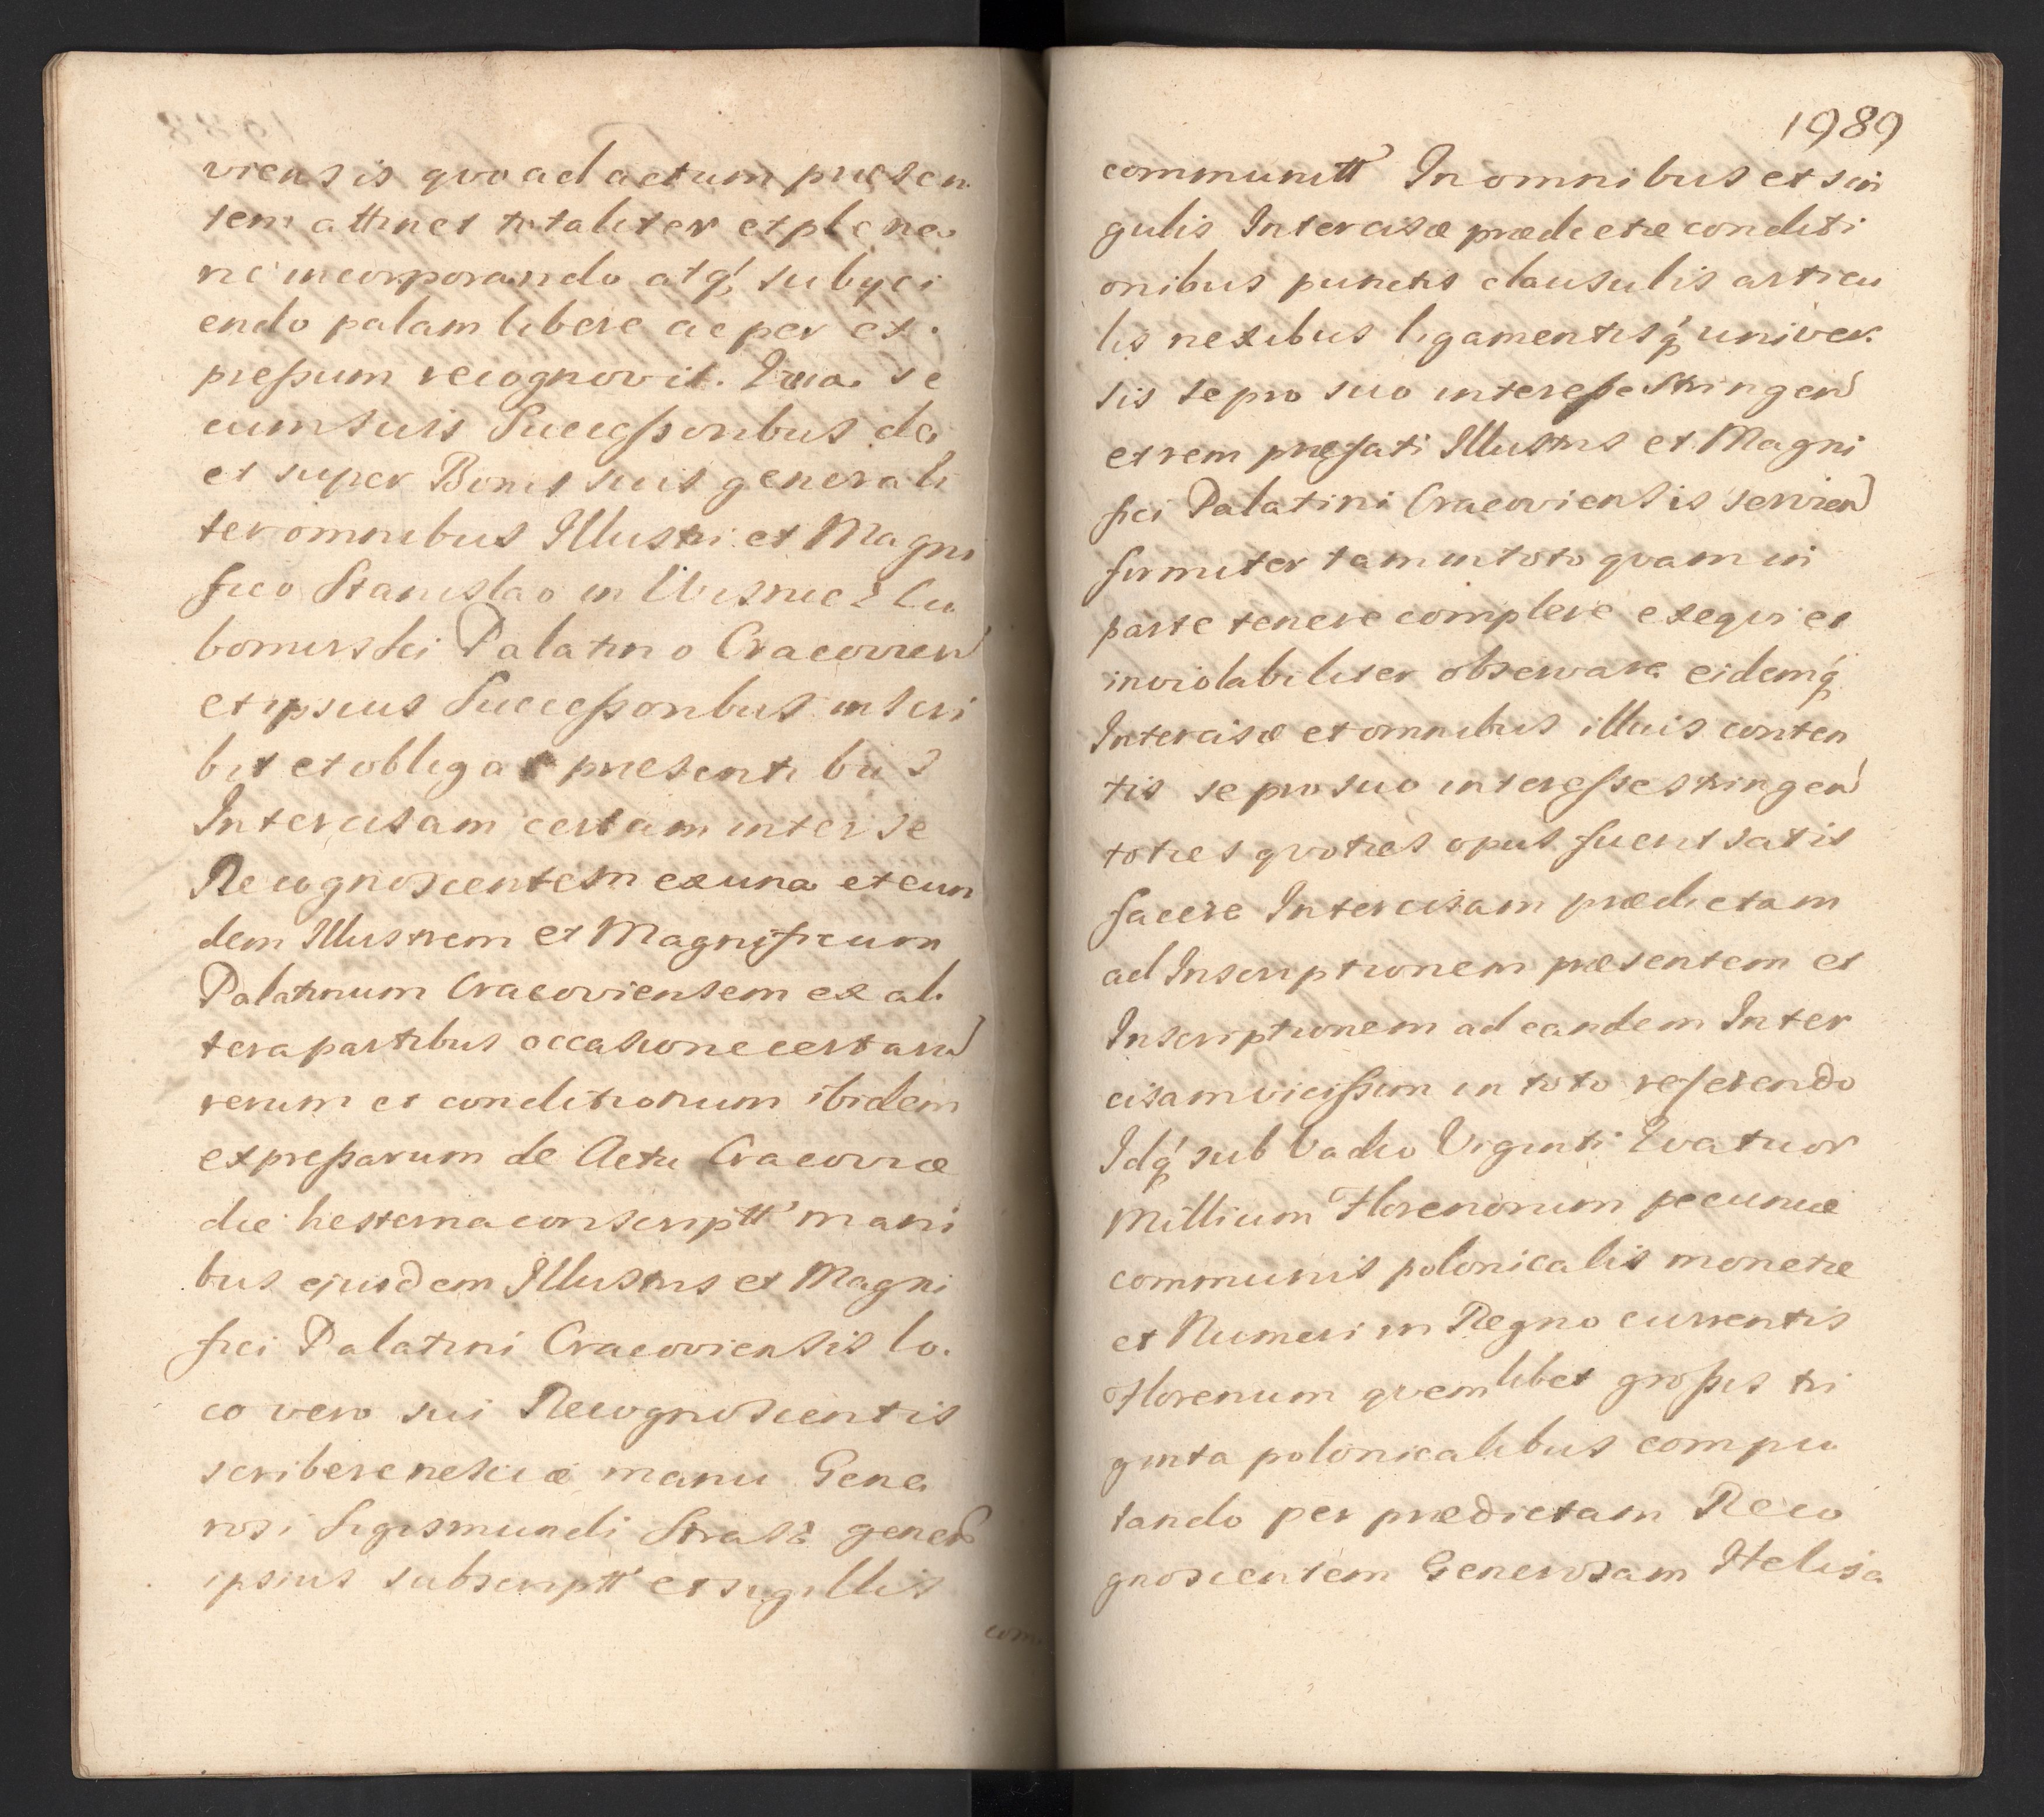 viensis qvo ad actum præsen
tem attinet totaliter et plene
nc incorporando atq́ subyci
endo palam libere ac per ex
preſsum recognovit. Qvia se
cum suis Succeſsoribus de
et super Bonis suis generali
ter omnibus Illustri et Magni
fico Stanislao in Wisnicz Lu
bomirski Palatino Cracovien
et ipsius Succeſsoribus inscri
bit et obligat præsentibus
Intercisam certam inter se
Recognoscentem ex una et eun
dem Illustrem et Magnificum
Palatinum Cracoviensem ex al
tera partibus occasione certarū
rerum et conditionum ibidem
expreſsarum de Actu Cracoviæ
die hesterna conscriptt' mani
bus ejusdem Illustris et Magni
fici Palatini Cracoviensis lo.
co vero sui Recognoscentis
scribere nesciæ manu Gene
rosi Sigismundi Strasz gener
ipsius subscriptt' et sigillis
1989
communitt' In omnibus et sin
gulis Intercisæ prædictæ conditi
onibus punctis clausulis articu
lis nexibus ligamentisq́ univer
sis se pro suo intereſse stringen
et rem præfati Illustris et Magni
fici Palatini Cracoviensis servien
firmiter tam in toto qvam in
parte tenere complere exeqvi et
inviolabiliter observare eidemq́
Intercisæ et omnibus illius conten
tis se pro suo intereſse stringen
toties qvoties opus fuerit satis
facere Intercisam prædictam
ad Inscriptionem præsentem et
Inscriptionem ad eandem Inter
cisam viciſsim in toto referendo
Idq́ sub Vadio Viginti Qvatuor
Millium Florenorum pecuniæ
communis polonicalis monetæ
et Numeri in Regno currentis
Florenum qvemlibet groſsis tri
ginta polonicalibus compu
tando per prædictam Reco
gnoscentem Generosam Helisa